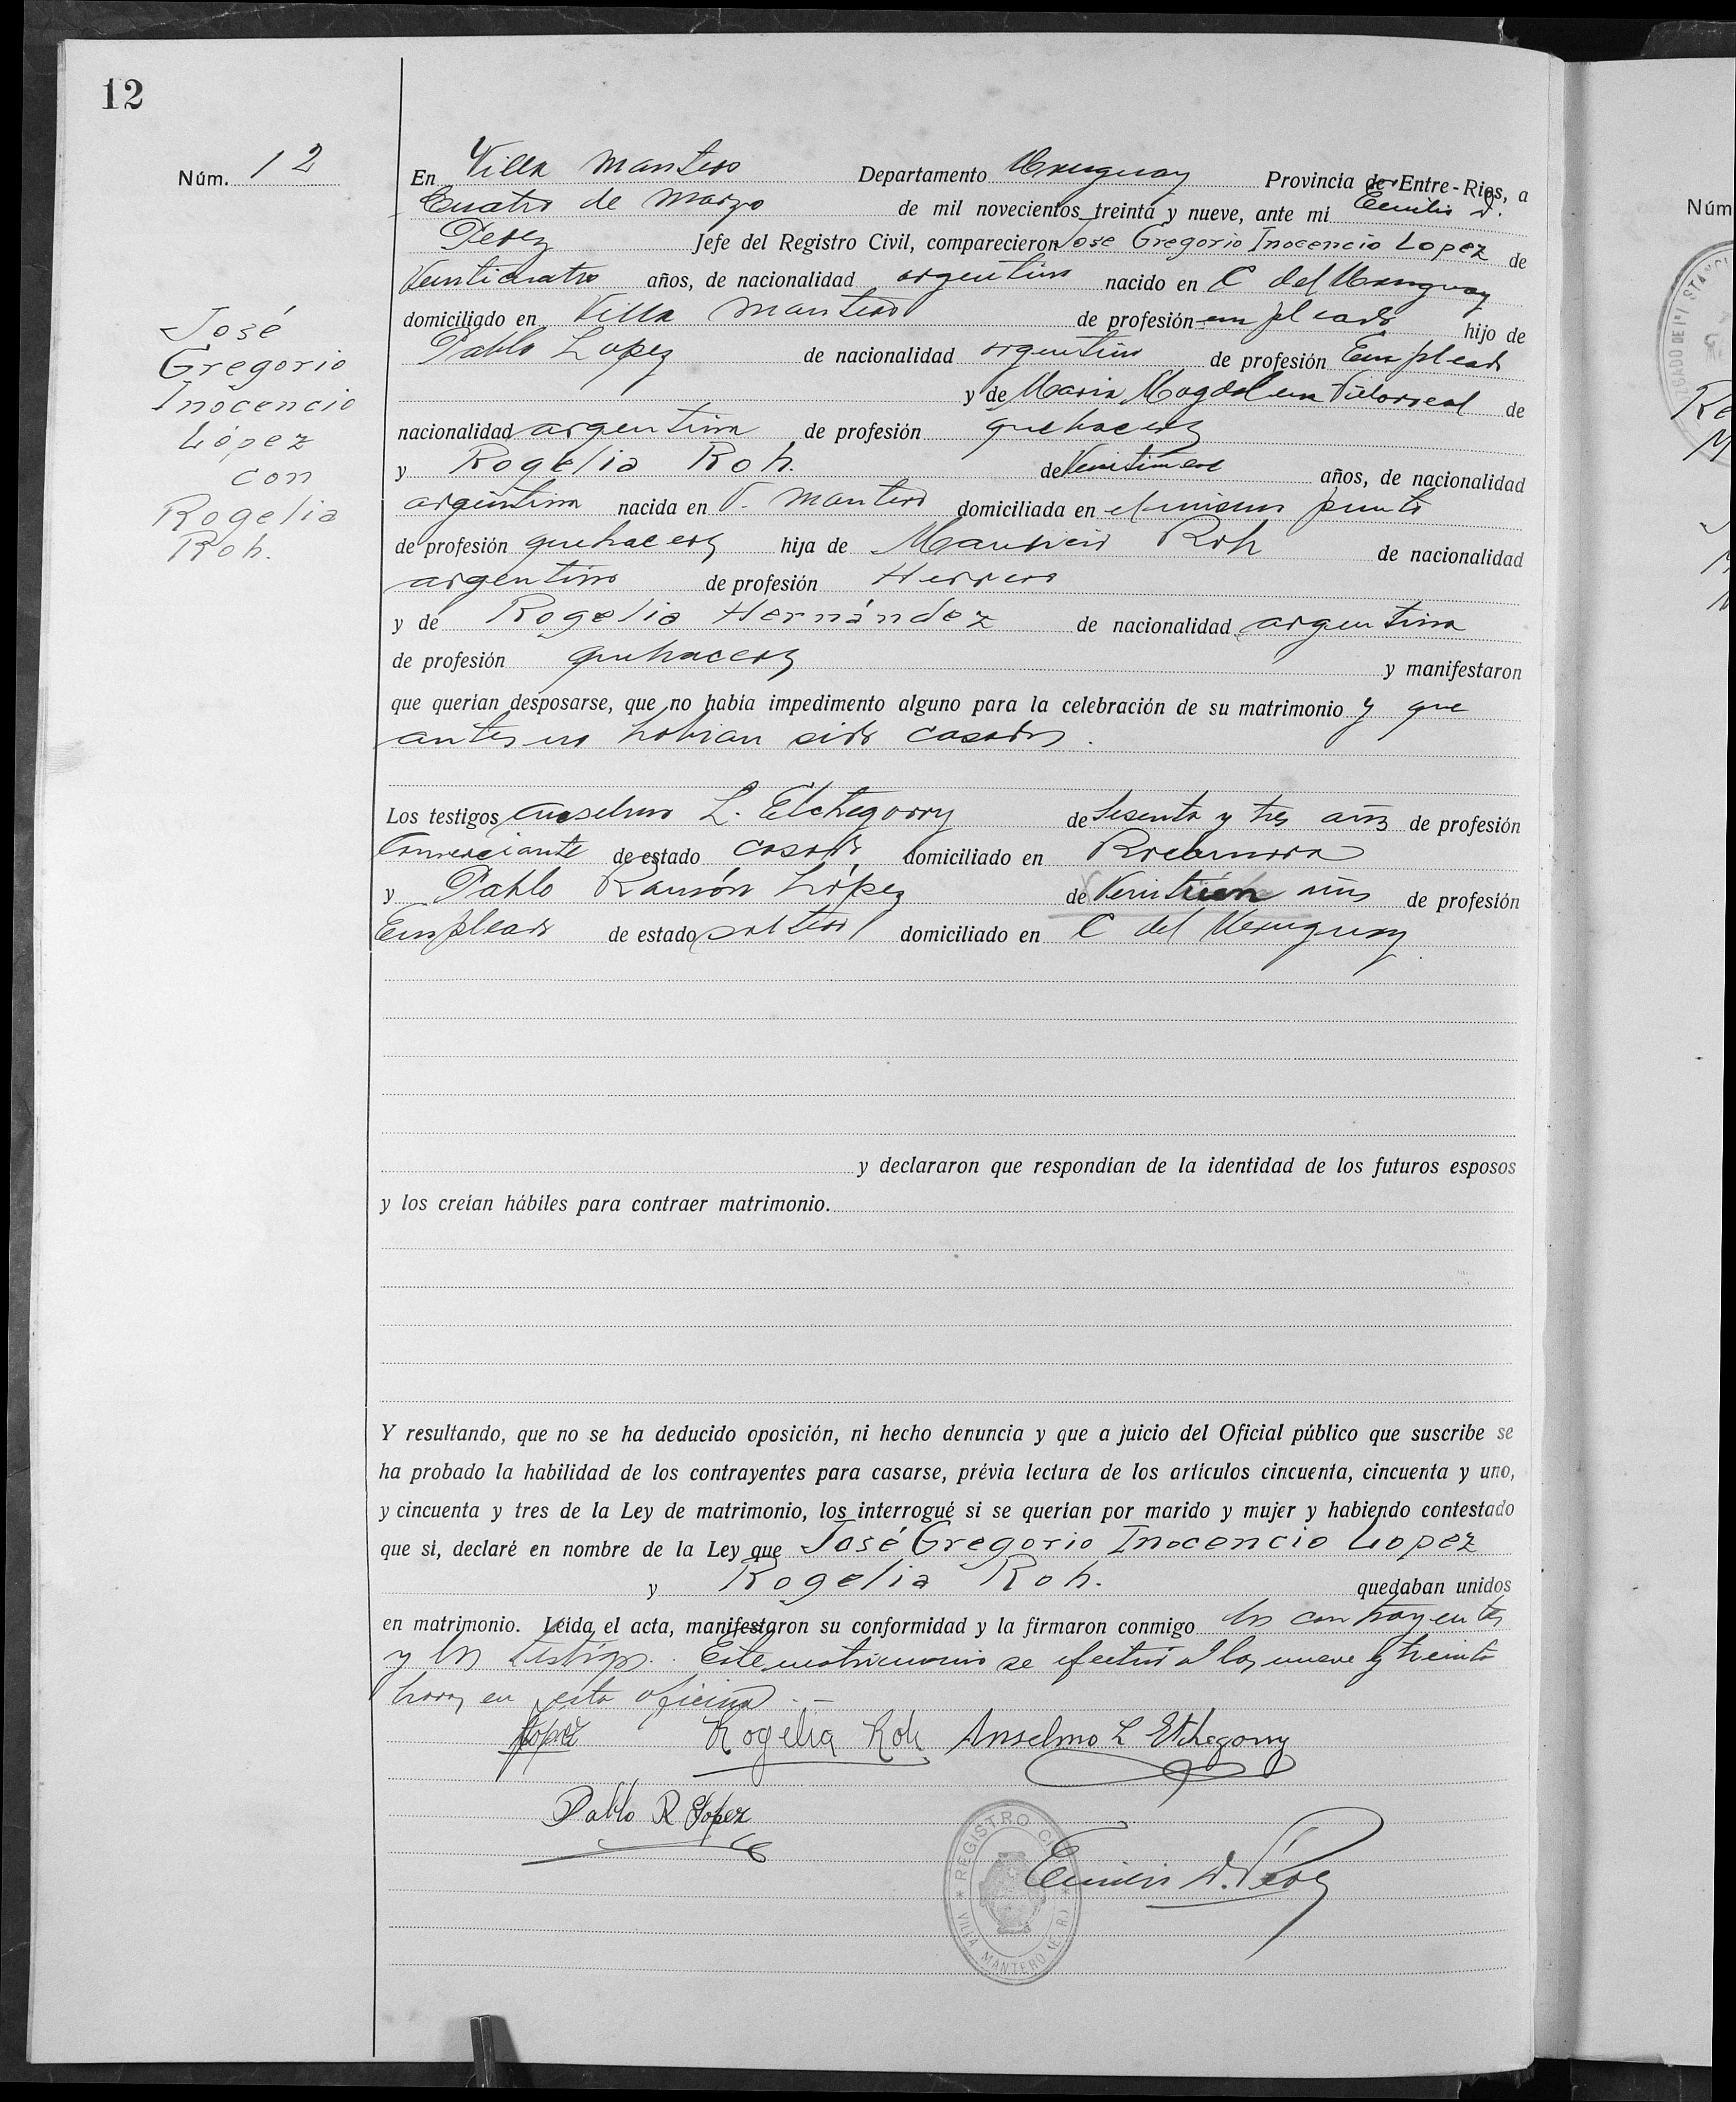 12
Núm. 12
José
Gregorio
Inocencio
López
con
Rogelia
Roh.
En Villa Mantero Departamento Uruguay Provincia de Entre-Rios, a
Cuatro de Marzo de mil novecientos treinta y nueve, ante mi Emilio D.
Perez Jefe del Registro Civil, comparecieron Jose Gregorio Inocencio Lopez de
Veinticuatro años, de nacionalidad argentino nacido en C del Uruguay
domiciliado en Villa Mantero de profesión empleado hijo de
Pablo Lopez de nacionalidad argentino de profesión Empleado
y de Maria Magdalena Villarreal de
nacionalidad argentina de profesión quehaceres
y Rogelia Roh. de años, de nacionalidad
argentina nacida en V. Mantero domiciliada en el mismo punto
de profesión quehaceres hija de Mauricio Roh de nacionalidad
argentino de profesión Herrero
y de Rogelia Hernández de nacionalidad argentina
de profesión quehaceres y manifestaron
que querian desposarse, que no habia impedimento alguno para la celebración de su matrimonio y que
antes no habian sido casados.
Los testigos Anselmo L. Etchegorry de Sesenta y tres años de profesión
Comerciante de estado casado domiciliado en Rocamora
y Pablo Ramón López de Veintiún años de profesión
Empleado de estado soltero domiciliado en C del Uruguay
y declararon que respondian de la identidad de los futuros esposos
y los creian hábiles para contraer matrimonio.
Y resultando, que no se ha deducido oposición, ni hecho denuncia y que a juicio del Oficial público que suscribe se
ha probado la habilidad de los contrayentes para casarse, prévia lectura de los artículos cincuenta, cincuenta y uno,
y cincuenta y tres de la Ley de matrimonio, los interrogué si se querian por marido y mujer y habiendo contestado
que si, declaré en nombre de la Ley que José Gregorio Inocencio Lopez
y Rogelia Roh. quedaban unidos
en matrimonio. Leida el acta, manifestaron su conformidad y la firmaron conmigo los contrayentes
y los testigos. Este matrimonio se efectuó a las nueve y treinta
horas en esta oficina.—
Lopez Rogelia Roh Anselmo L Etchegorry
Pablo R Lopez
Emilio D. Pérez
REGISTRO CIVIL
VILLA MANTERO (E. R.)
Núm